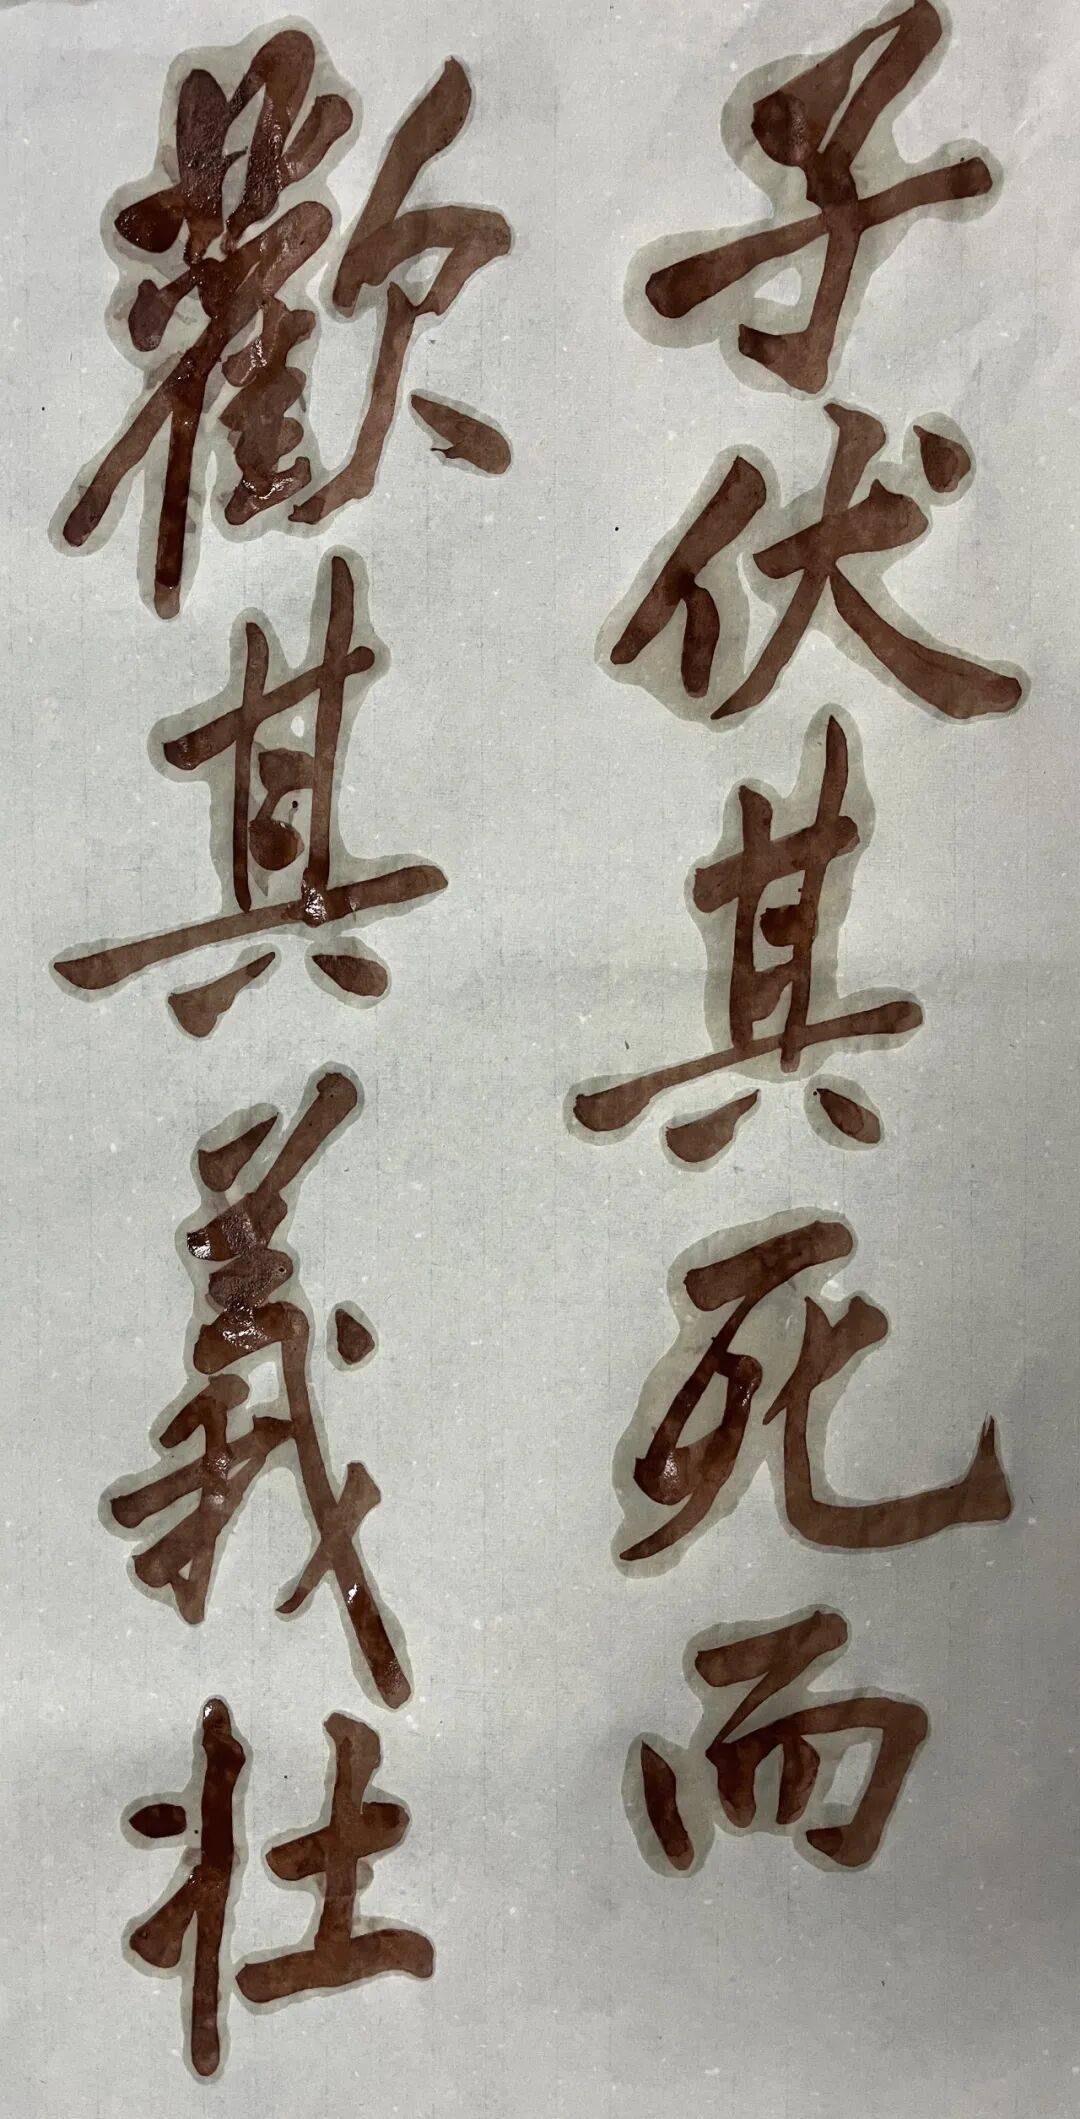 子伏其死而
歡其義壯